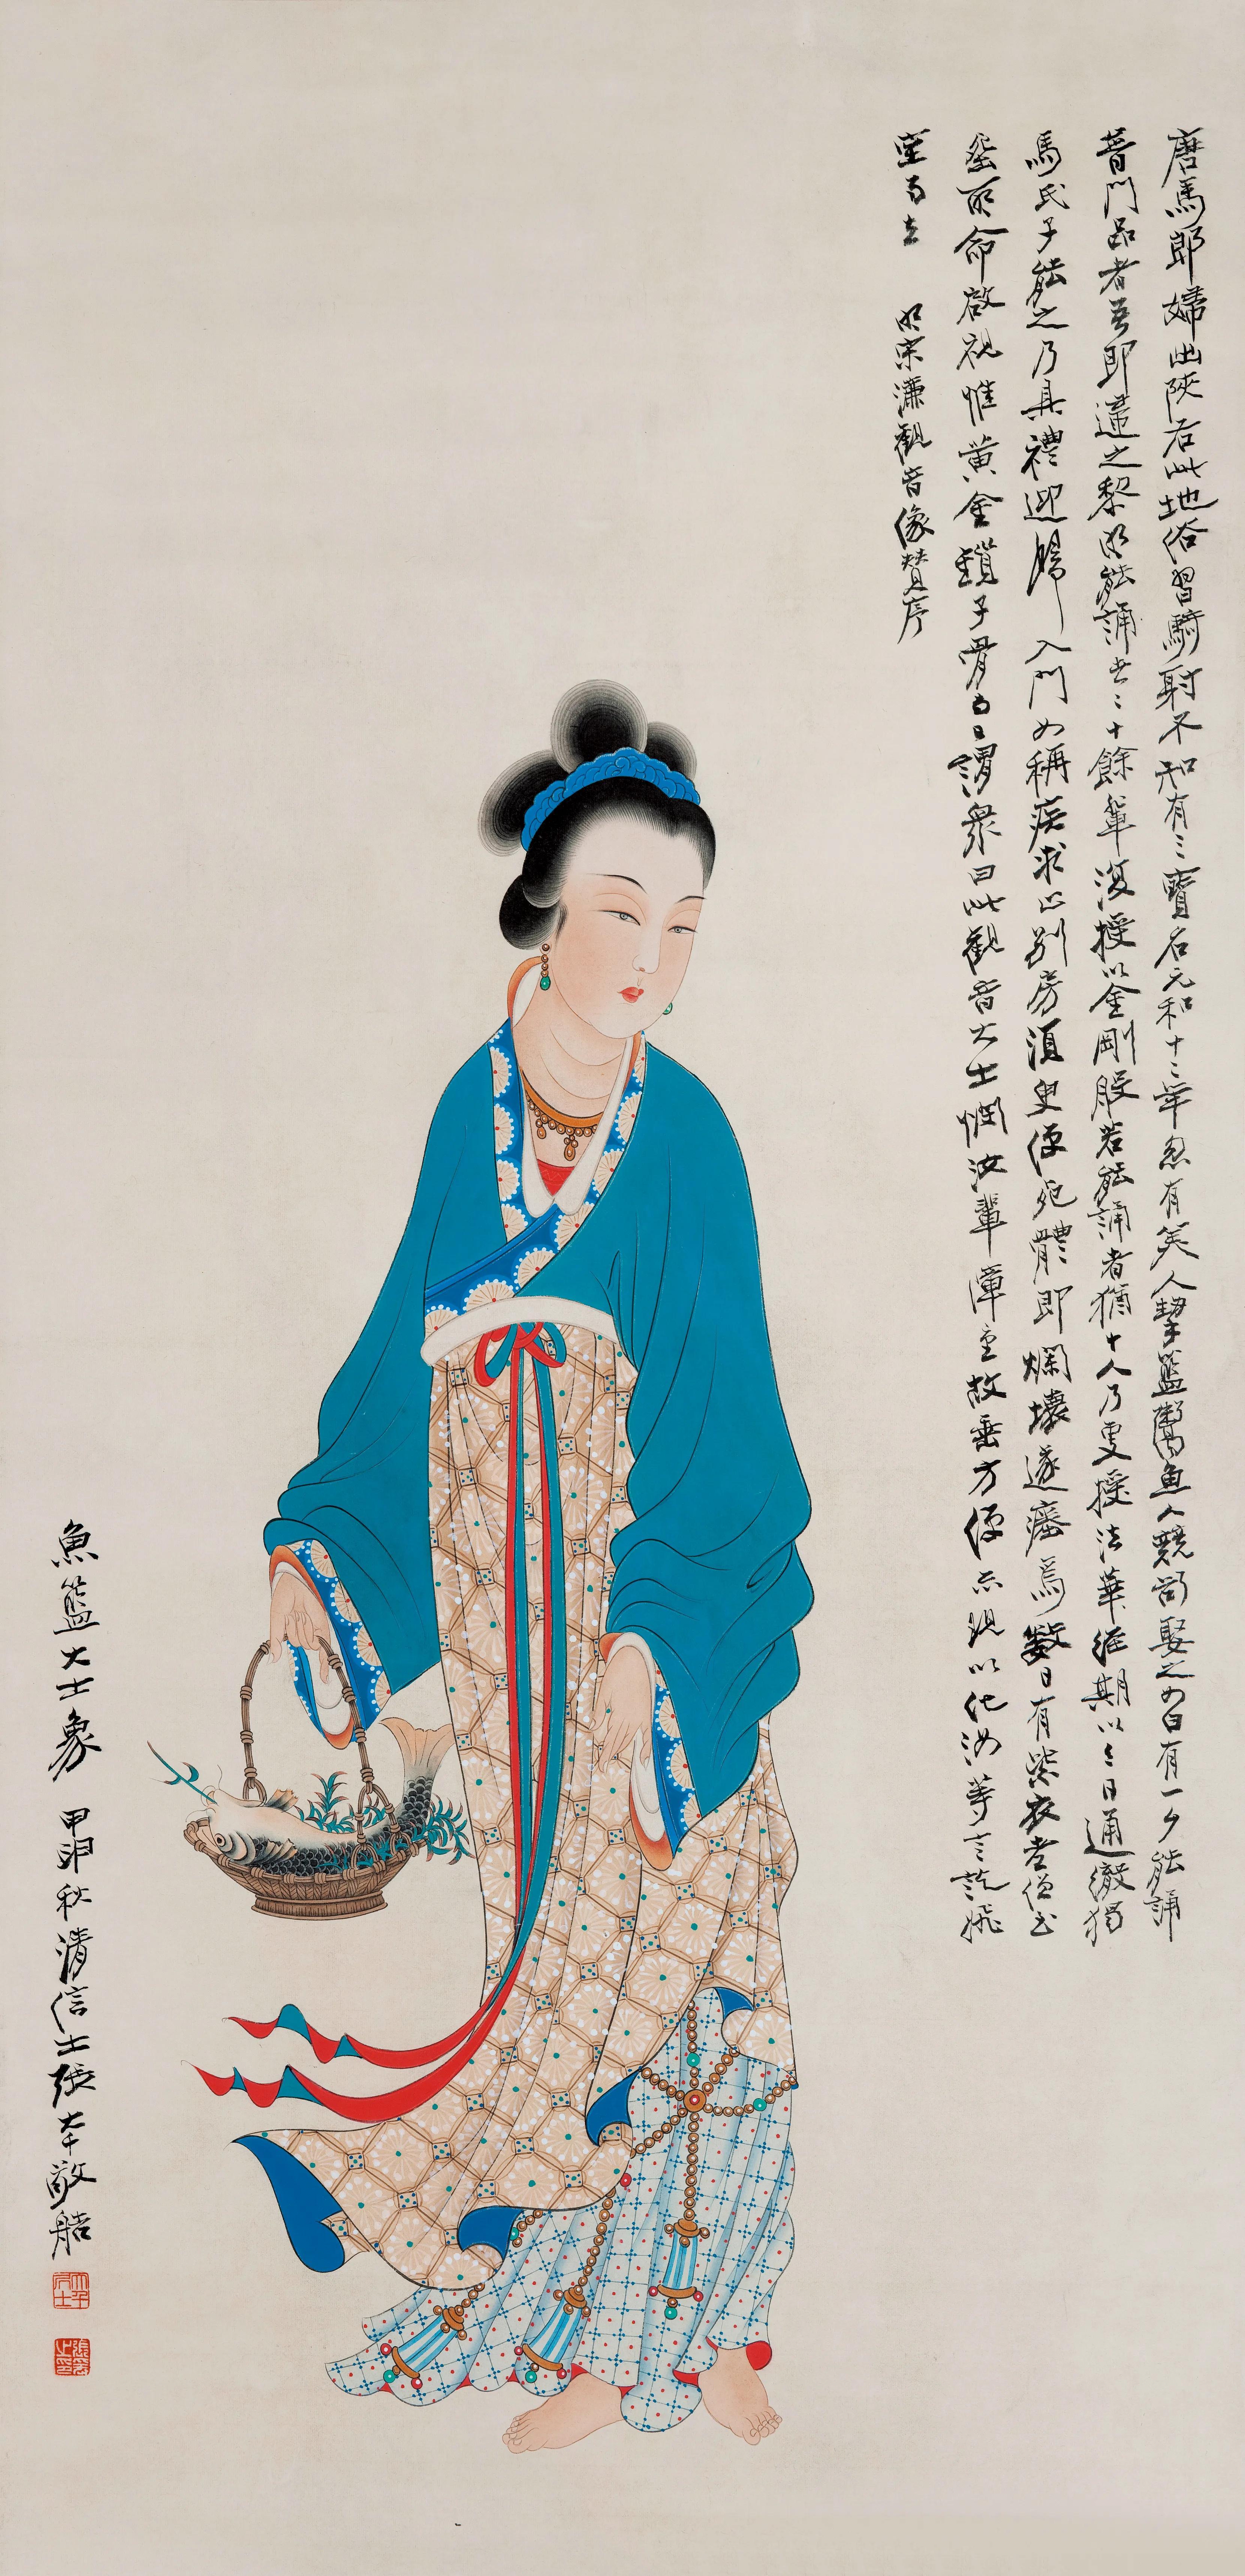 唐馬郎婦出陝右此地俗習騎射不知有三寶名元和十二年忽有美人挈籃鬻魚人競欲娶之女曰有一夕能誦
普門品者吾即歸之黎明能誦者二十餘輩復授以金剛般若能誦者猶十人乃更授法華經期以三日通徹獨
馬氏子能之乃具禮迎歸入門女稱疾求止別房須臾便死體即爛壞遂瘞焉數日有紫衣老僧至
瘞所命啟視惟黃金鎖子骨存焉謂眾曰此觀音大士憫汝輩障重故垂方便示現以化汝等言訖飛
空而去 明宋濂觀音像贊序
魚籃大士象 甲申秋清信士張大千敬造